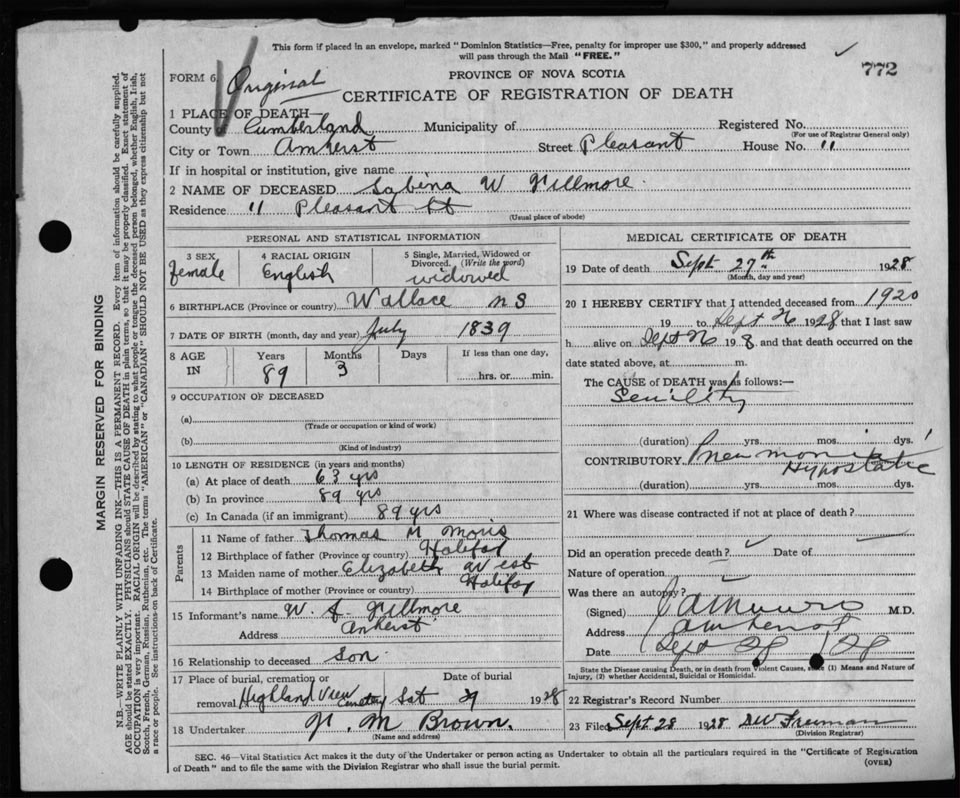 This form if placed in an envelope, marked "Dominion Statistics—Free, penalty for improper use $300," and properly addressed
will pass through the Mail "FREE."
772
FORM 6
Original
PROVINCE OF NOVA SCOTIA
CERTIFICATE OF REGISTRATION OF DEATH
1 PLACE OF DEATH—
County Cumberland Municipality of Registered No.
(For use of Registrar General only)
City or Town Amherst Street Pleasant House No. 11
If in hospital or institution, give name
2 NAME OF DECEASED Sabina W Fillmore
Residence 11 Pleasant St
(Usual place of abode)
PERSONAL AND STATISTICAL INFORMATION
3 SEX 4 RACIAL ORIGIN 5 Single, Married, Widowed or
Divorced. (Write the word)
female English widowed
6 BIRTHPLACE (Province or country) Wallace N S
7 DATE OF BIRTH (month, day and year) July 1839
8 AGE IN Years Months Days If less than one day,
89 3 hrs. or min.
9 OCCUPATION OF DECEASED
(a)
(Trade or occupation or kind of work)
(b)
(Kind of industry)
10 LENGTH OF RESIDENCE (in years and months)
(a) At place of death 63 yrs
(b) In province 89 yrs
(c) In Canada (if an immigrant) 89 yrs
Parents
11 Name of father Thomas M Moris
12 Birthplace of father (Province or country) Halifax
13 Maiden name of mother Elizabeth West
14 Birthplace of mother (Province or country) Halifax
15 Informant's name W. Fillmore
Address Amherst
16 Relationship to deceased Son
17 Place of burial, cremation or Date of burial
removal Highland View Cemetery Sat 29 1928
18 Undertaker M Brown.
(Name and address)
MEDICAL CERTIFICATE OF DEATH
19 Date of death Sept 27th 1928
(Month, day and year)
20 I HEREBY CERTIFY that I attended deceased from 1920
19 to Sept 26 1928 that I last saw
h alive on Sept 26 19 8. and that death occurred on the
date stated above, at m.
The CAUSE of DEATH was as follows:—
Senility
(duration) yrs. mos. dys.
CONTRIBUTORY Pneumonia
Hypostatic
(duration) yrs. mos. dys.
21 Where was disease contracted if not at place of death?
Did an operation precede death? Date of
Nature of operation
Was there an autopsy?
(Signed) Munro M.D.
Address Amherst
Date Sept 28 / 28
State the Disease causing Death, or in death from Violent Causes, state (1) Means and Nature of
Injury, (2) whether Accidental, Suicidal or Homicidal.
22 Registrar's Record Number
23 Filed Sept. 28 1928 Freeman
(Division Registrar)
SEC. 46—Vital Statistics Act makes it the duty of the Undertaker or person acting as Undertaker to obtain all the particulars required in the "Certificate of Registration
of Death" and to file the same with the Division Registrar who shall issue the burial permit.
(OVER)
MARGIN RESERVED FOR BINDING
N.B.—WRITE PLAINLY WITH UNFADING INK—THIS IS A PERMANENT RECORD. Every item of information should be carefully supplied.
AGE should be stated EXACTLY. PHYSICIANS should STATE CAUSE OF DEATH in plain terms, so that it may be properly classified. Exact statement of
OCCUPATION is very important. RACIAL ORIGIN will be described by stating to what people or tongue the deceased person belonged, whether English, Irish,
Scotch, French, German, Russian, Ruthenian, etc. The terms "AMERICAN" or "CANADIAN" SHOULD NOT BE USED as they express citizenship but not
a race or people. See instructions on back of Certificate.